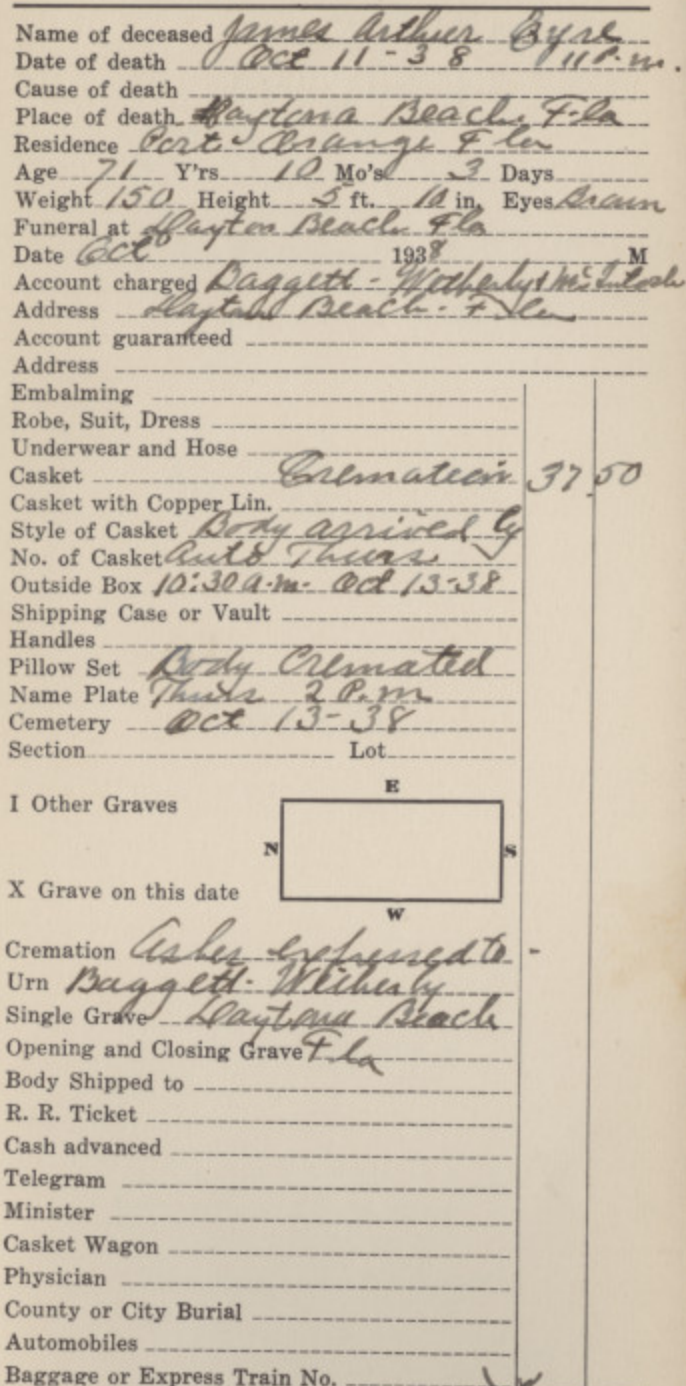 Name of deceased James Arthur Eyre
Date of death Oct 11-38 11 P.m.
Cause of death
Place of death Daytona Beach Fla
Residence Port Orange Fla
Age 71 Y'rs 10 Mo's 3 Days
Weight 150 Height 5 ft. 10 in. Eyes Brown
Funeral at Dayton Beach Fla
Date Oct 1938 M
Account charged Baggett - Wetherby & McIntosh
Address Dayton Beach - Fla
Account guaranteed
Address
Embalming
Robe, Suit, Dress
Underwear and Hose
Casket Cremation 37.50
Casket with Copper Lin.
Style of Casket Body arrived by
No. of Casket Auto Thurs
Outside Box 10:30 a.m. Oct 13-38
Shipping Case or Vault
Handles
Pillow Set Body Cremated
Name Plate Thurs 2 P.m
Cemetery Oct 13-38
Section Lot
E
I Other Graves
N S
X Grave on this date
W
Cremation Ashes expressed to -
Urn Baggett- Wetherby
Single Grave Daytona Beach
Opening and Closing Grave Fla
Body Shipped to
R. R. Ticket
Cash advanced
Telegram
Minister
Casket Wagon
Physician
County or City Burial
Automobiles
Baggage or Express Train No.